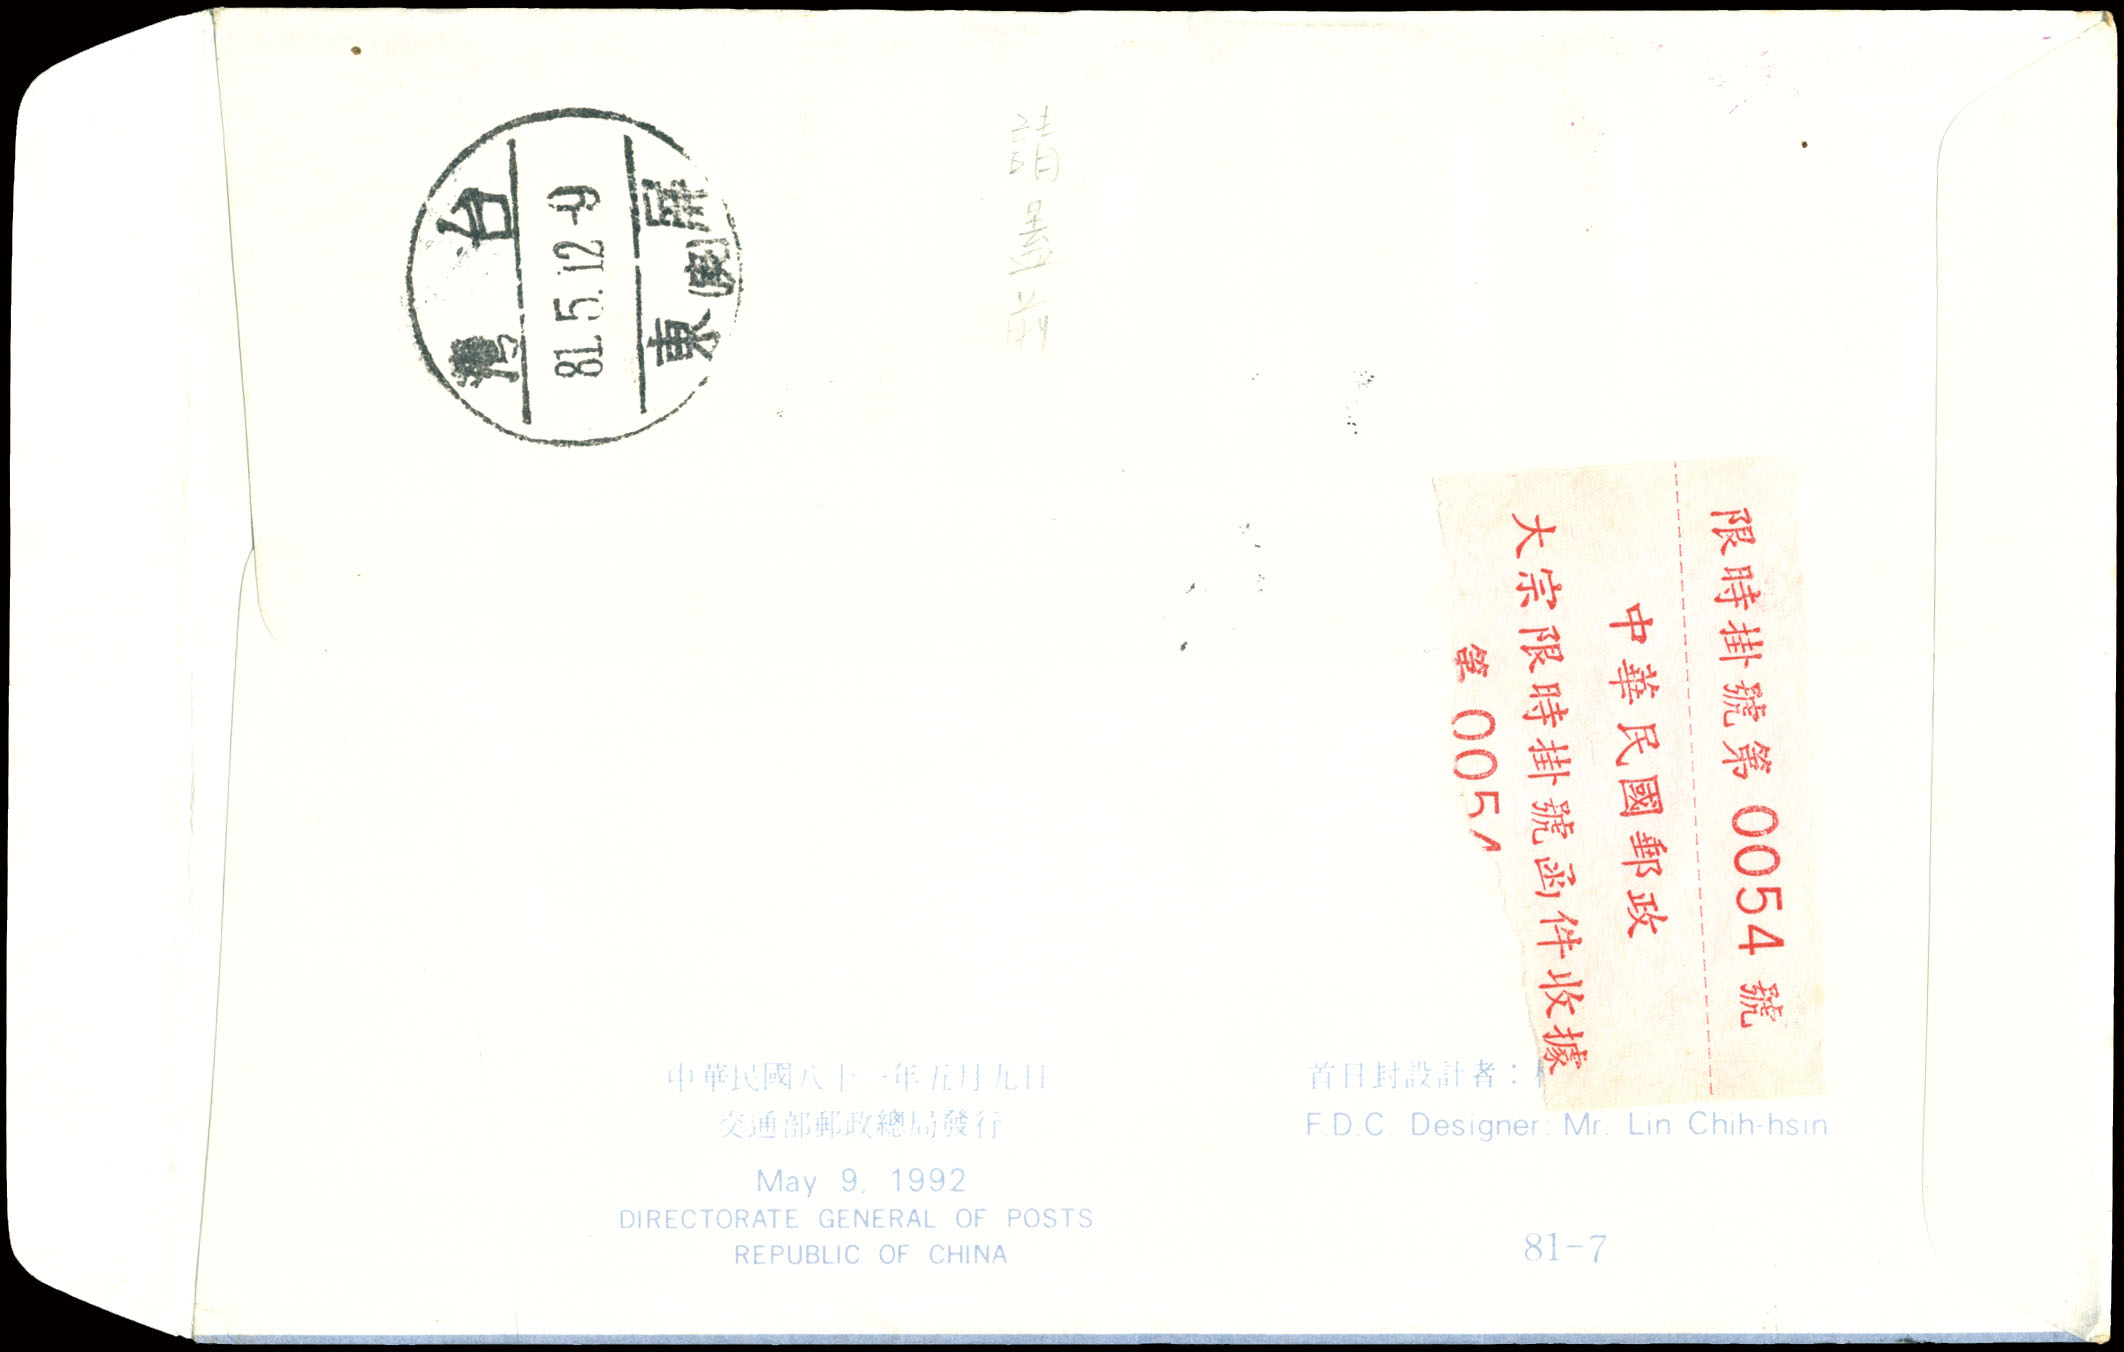 台灣
81.5.12-9
屏東
請蓋前
限時掛號第 0054 號
中華民國郵政
大宗限時掛號函件收據
第 005
中華民國八十一年五月九日
交通部郵政總局發行
May 9, 1992
DIRECTORATE GENERAL OF POSTS
REPUBLIC OF CHINA
首日封設計者：
F.D.C. Designer: Mr. Lin Chih-hsin
81-7